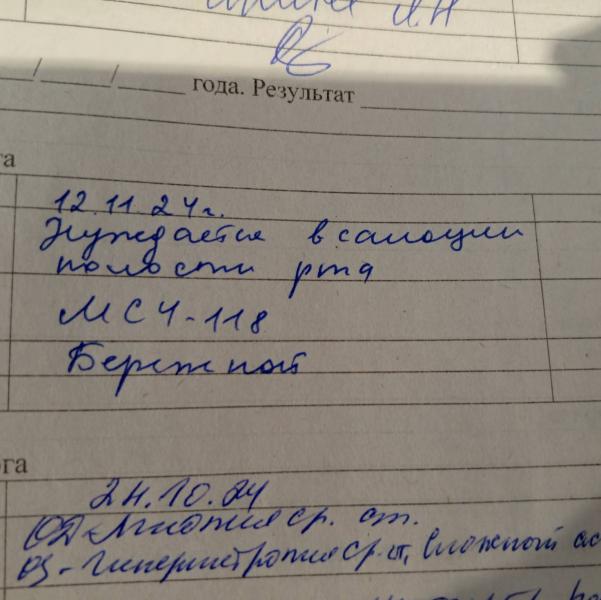 года. Результат
12.11.24г.
Нуждается в санации
полости рта
МСЧ-118
Бережной
24.10.24
OD - Миопия ср. ст.
OS - Гиперметропия ср. ст, сложный ас